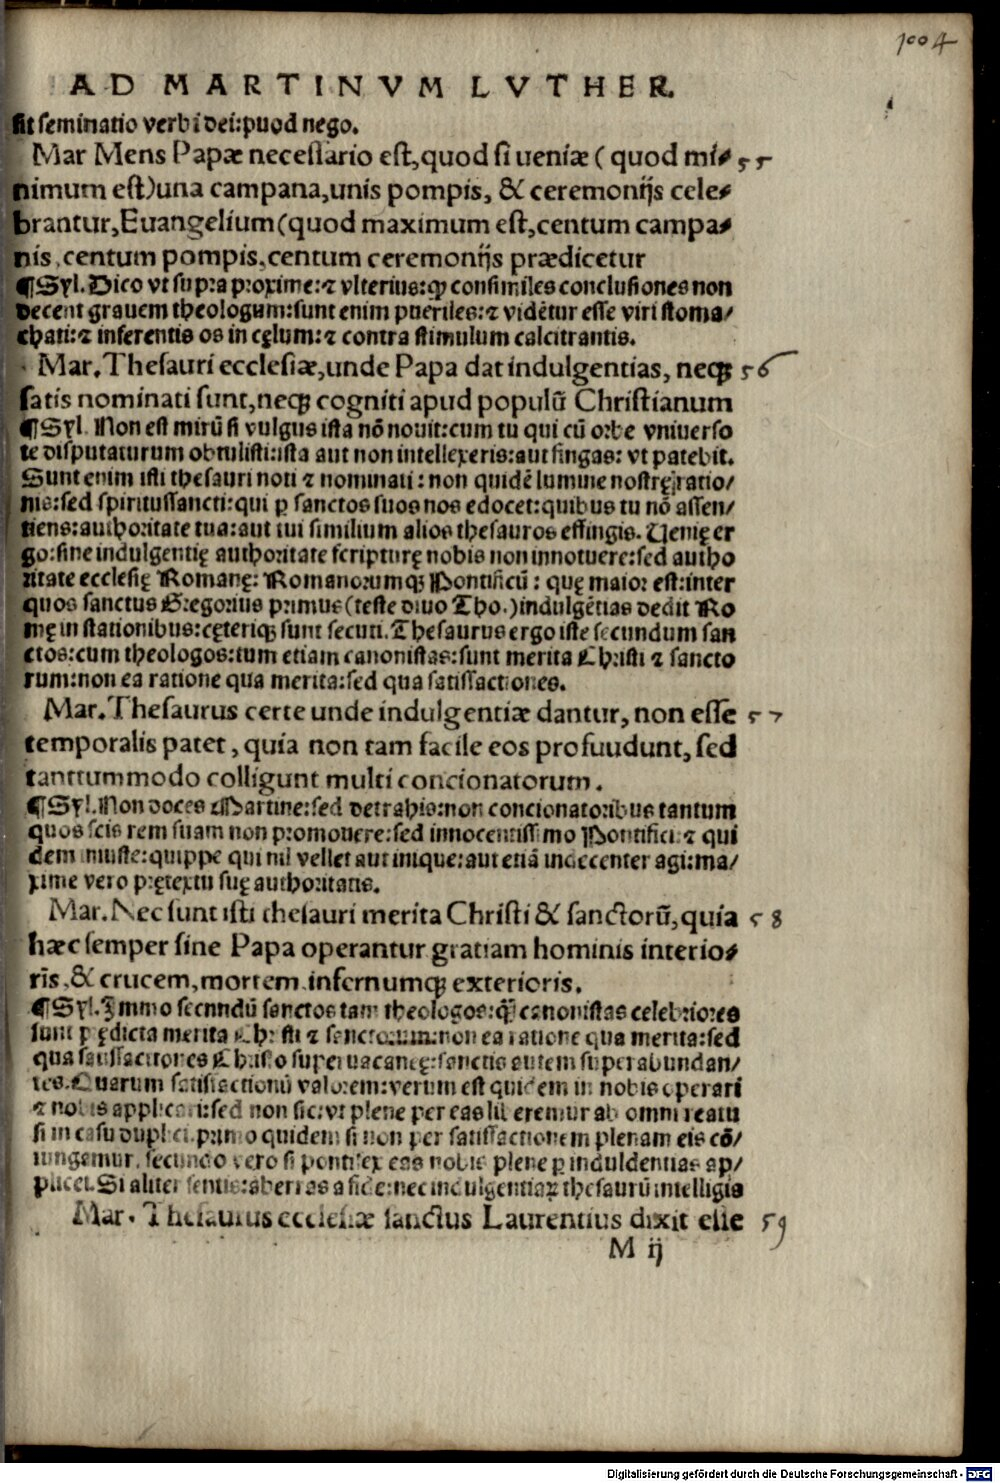 1004
AD MARTINVM LVTHER.
sit seminatio verbi dei: puod nego.
Mar Mens Papæ necessario est, quod si ueniæ ( quod mi⸗ 55
nimum est) una campana, unis pompis, & ceremonijs cele⸗
brantur, Euangelium (quod maximum est, centum campa⸗
nis, centum pompis, centum ceremonijs prædicetur
¶Syl. Dico vt supra proxime: ⁊ vlterius: ꝙ consimiles conclusiones non
decent grauem theologum: sunt enim pueriles: ⁊ vidẽtur esse viri stoma/
chati: ⁊ inferentis os in cęlum: ⁊ contra stimulum calcitrantis.
Mar. Thesauri ecclesiæ, unde Papa dat indulgentias, neqꝫ 56
satis nominati sunt, neqꝫ cogniti apud populũ Christianum
¶Syl. Non est mirũ si vulgus ista nõ nouit: cum tu qui cũ orbe vniuerso
te disputaturum obtulisti: ista aut non intellexeris: aut fingas: vt patebit.
Sunt enim isti thesauri noti ⁊ nominati: non quidẽ lumine nostrę ratio/
nis: sed spiritussancti: qui ꝑ sanctos suos nos edocet: quibus tu nõ assen/
tiens: authoritate tua: aut tui similium alios thesauros effingis. Uenię er
go: siue indulgentię authoritate scripturę nobis non innotuere: sed autho
ritate ecclesię Romanę: Romanorumqꝫ Pontificũ: quę maior est: inter
quos sanctus Gregorius primus (teste diuo Tho.) indulgẽtias dedit Ro
mę in stationibus: cęteriqꝫ sunt secuti. Thesaurus ergo iste secundum san
ctos: cum theologos: tum etiam canonistas: sunt merita Christi ⁊ sancto
rum: non ea ratione qua merita: sed qua satisfactiones.
Mar. Thesaurus certe unde indulgentiæ dantur, non esse 57
temporalis patet, quia non tam facile eos profuudunt, sed
tanttummodo colligunt multi concionatorum.
¶Syl. Non doces Martine: sed detrahis: non concionatoribus tantum
quos scis rem suam non promouere: sed innocentissimo Pontifici: ⁊ qui
dem iniuste: quippe qui nil vellet aut inique: aut etiã indecenter agi: ma/
xime vero prętextu suę authoritatis.
Mar. Nec sunt isti thesauri merita Christi & sanctorũ, quia 58
hæc semper sine Papa operantur gratiam hominis interio⸗
ris, & crucem, mortem infernumqꝫ exterioris.
¶Syl. Immo secnndũ sanctos tam theologos: ꝙ̃ canonistas celebriores
sunt pꝛędicta merita Christi ⁊ sanctorum: non ea ratione qua merita: sed
qua satisfactiones Christo superuacanę: sanctis autem superabundan/
tes. Quarum satisfactionũ valorem: verum est quidem in nobis operari
⁊ nobis applicari: sed non sic: vt plene per eas liberemur ab omni reatu
si in casu duplici. primo quidem si non per satisfactionem plenam eis cõ/
iungemur. secundo vero si pontifex eas nobis plene ꝑ induldentias ap/
plicet. Si aliter sentis: aberras a fide: nec indulgentiaꝝ thesaurũ intelligis
Mar. Thesaurus ecclesiæ sanctus Laurentius dixit esse 59
M ij
Digitalisierung gefördert durch die Deutsche Forschungsgemeinschaft - DFG